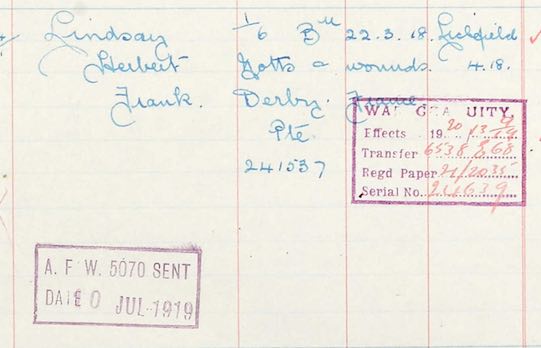 Lindsay 1/6 Bn 22.3.18. Lichfield
Herbert Notts & wounds. 4.18.
Frank. Derby. France
Pte
241537
WAR GRATUITY.
Effects 19
Transfer 6538 868
Regd Paper
Serial No.
A. F W. 5070 SENT
DATE 0 JUL 1919